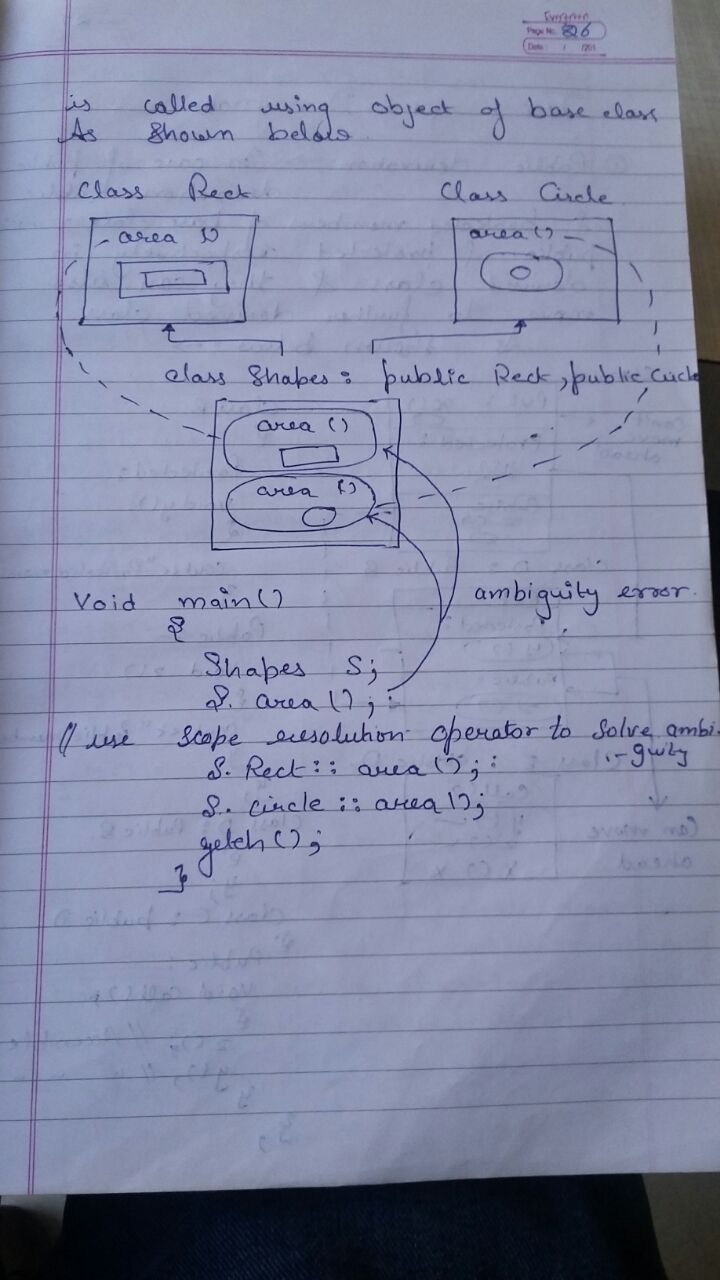 Evergreen
Page No. 826
Date / /201
is called using object of base class
As shown below.
Class Rect Class Circle
area () area ()
class Shapes: public Rect, public Circle
area ()
area ()
Void main() ambiguity error.
{
Shapes S;
S. area ();
// use scope resolution operator to solve ambi-
-guity
S. Rect:: area ();
S. circle :: area ();
getch();
}